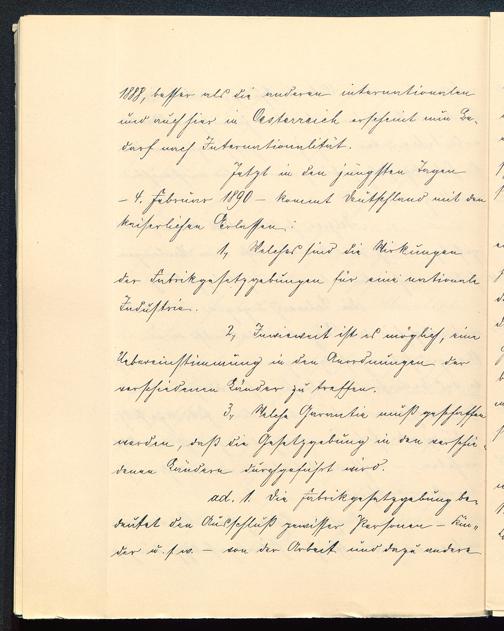 1888, besser als die anderen internationalen
und auch hier in Oesterreich erscheint nun Be-
darf nach Internationalität.
Jetzt in den jüngsten Tagen
- 4. Februar 1890 - kommt Deutschland mit den
kaiserlichen Erlassen:
1, Welches sind die Wirkungen
der Fabrikgesetzgebungen für eine nationale
Industrie.
2, Inwieweit ist es möglich, eine
Uebereinstimmung in den Anordnungen der
verschiedenen Länder zu treffen.
3, Welche Garantie muß geschaffen
werden, daß die Gesetzgebung in den verschie-
denen Ländern durchgeführt wird.
ad. 1. Die Fabrikgesetzgebung be-
deutet den Ausschluß gewisser Personen - Kin-
der u. s. w. - von der Arbeit und dazu andere